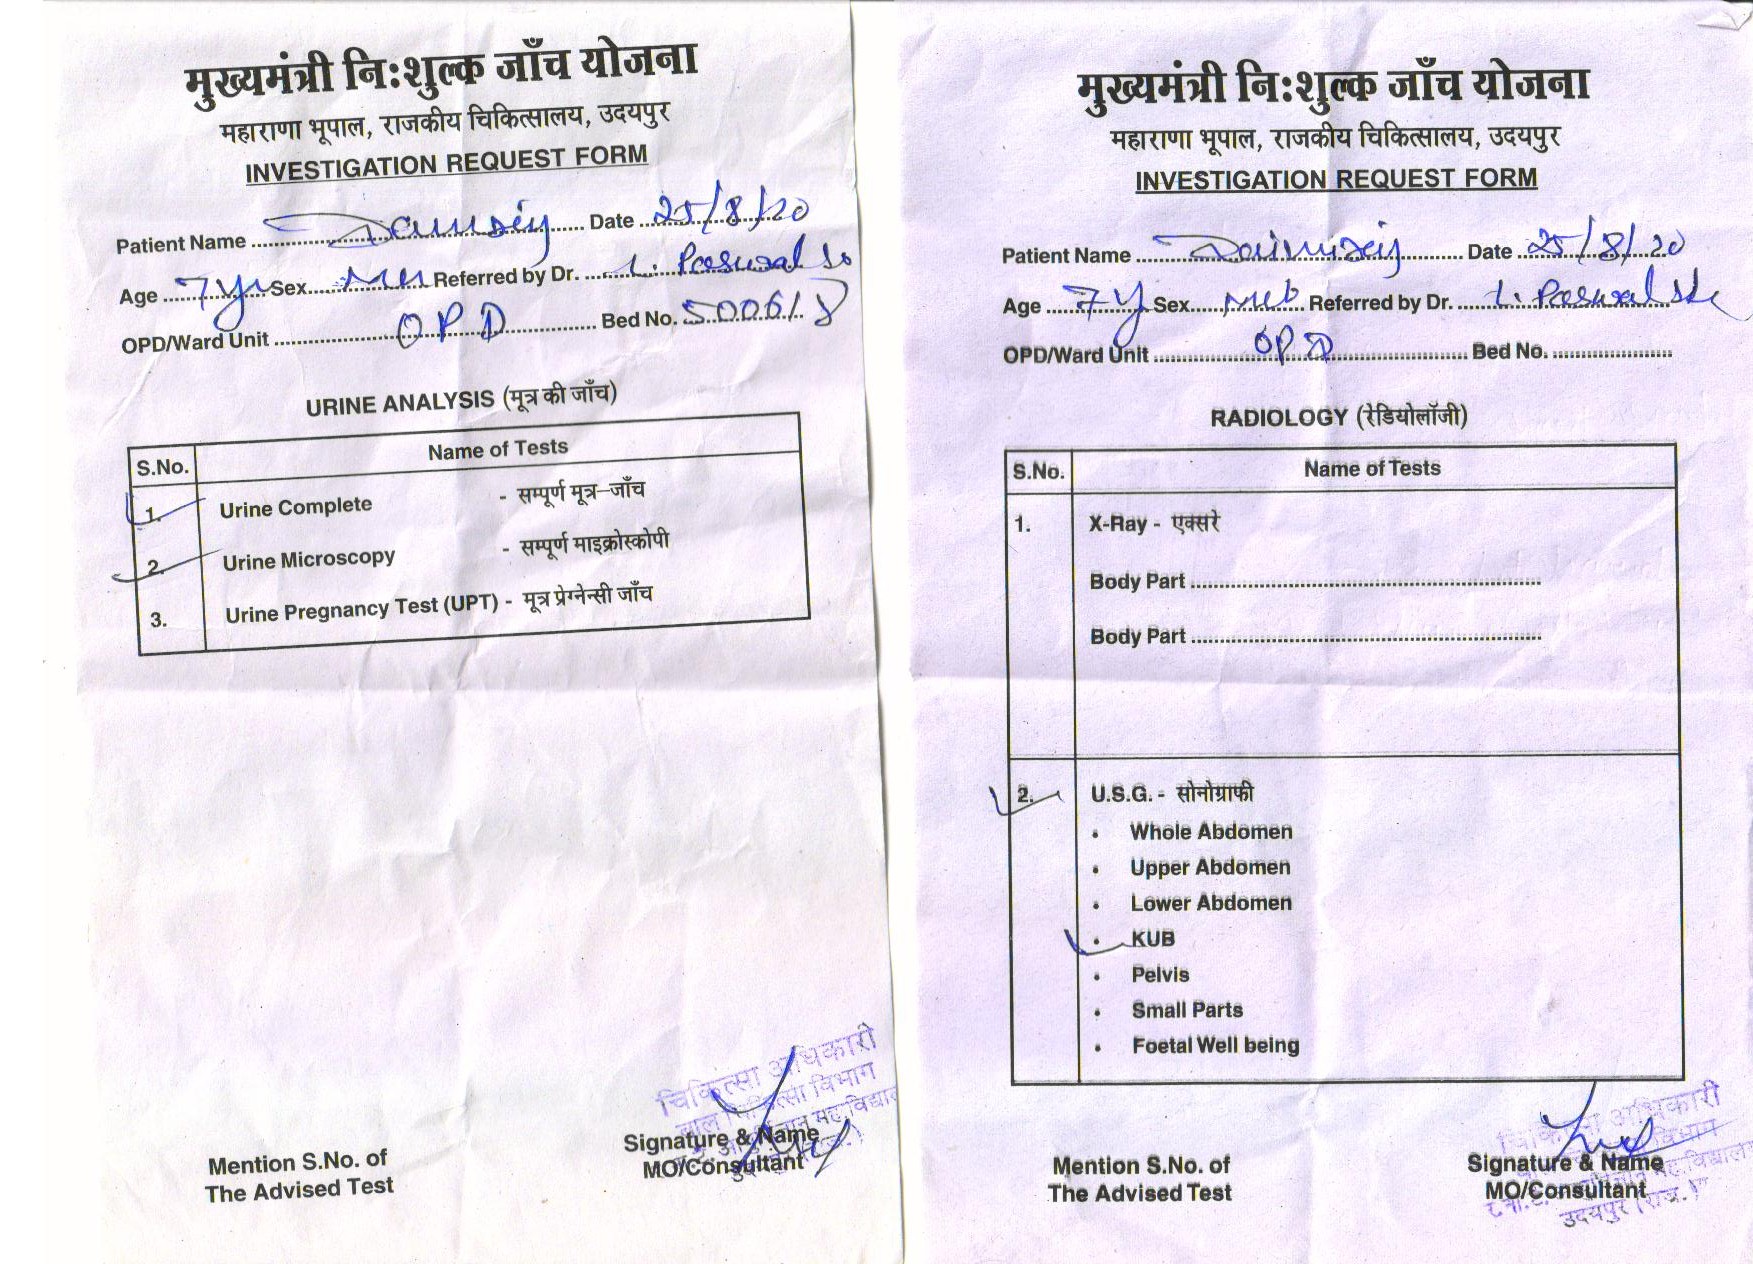 मुख्यमंत्री नि:शुल्क जाँच योजना
महाराणा भूपाल, राजकीय चिकित्सालय, उदयपुर
INVESTIGATION REQUEST FORM
Patient Name ........ Date 25/8/20
Age 7yr Sex ........ Referred by Dr. L.
OPD/Ward Unit OPD Bed No. 50061
URINE ANALYSIS (मूत्र की जाँच)
S.No. Name of Tests
1. Urine Complete - सम्पूर्ण मूत्र–जाँच
2. Urine Microscopy - सम्पूर्ण माइक्रोस्कोपी
3. Urine Pregnancy Test (UPT) - मूत्र प्रेग्नेन्सी जाँच
चिकित्सा अधिकारी
Signature & Name
MO/Consultant
Mention S.No. of
The Advised Test
मुख्यमंत्री नि:शुल्क जाँच योजना
महाराणा भूपाल, राजकीय चिकित्सालय, उदयपुर
INVESTIGATION REQUEST FORM
Patient Name ........ Date 25/8/20
Age 7y Sex ........ Referred by Dr. L.
OPD/Ward Unit OPD Bed No. ........
RADIOLOGY (रेडियोलॉजी)
S.No. Name of Tests
1. X-Ray - एक्सरे
Body Part ........
Body Part ........
2. U.S.G. - सोनोग्राफी
• Whole Abdomen
• Upper Abdomen
• Lower Abdomen
• KUB
• Pelvis
• Small Parts
• Foetal Well being
चिकित्सा अधिकारी
Signature & Name
MO/Consultant
उदयपुर (राज.)
Mention S.No. of
The Advised Test